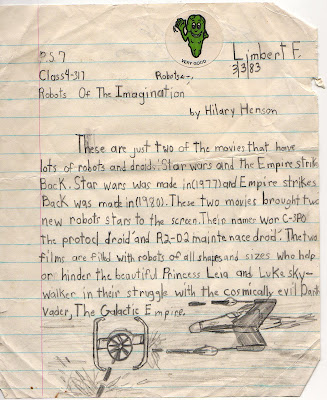 VERY GOOD
P.S. 7
Limbert F.
Class 4-317
3/3/83
Robots
Robots Of The Imagination
by Hilary Henson
These are just two of the movies that have
lots of robots and droid. Star wars and the Empire strike
Back. Star wars was made in (1977) and Empire strikes
Back was made in (1980). These two movies brought two
new robots stars to the screen. Their names war C-3PO
the protocl droid and R2-D2 maintenace droid. The two
films are filld with robots of all shapes and sizes who help
or hinder the beautiful Princess Leia and Luke sky-
walker in their struggle with the cosmically evil Darth
Vader, The Galactic Empire.